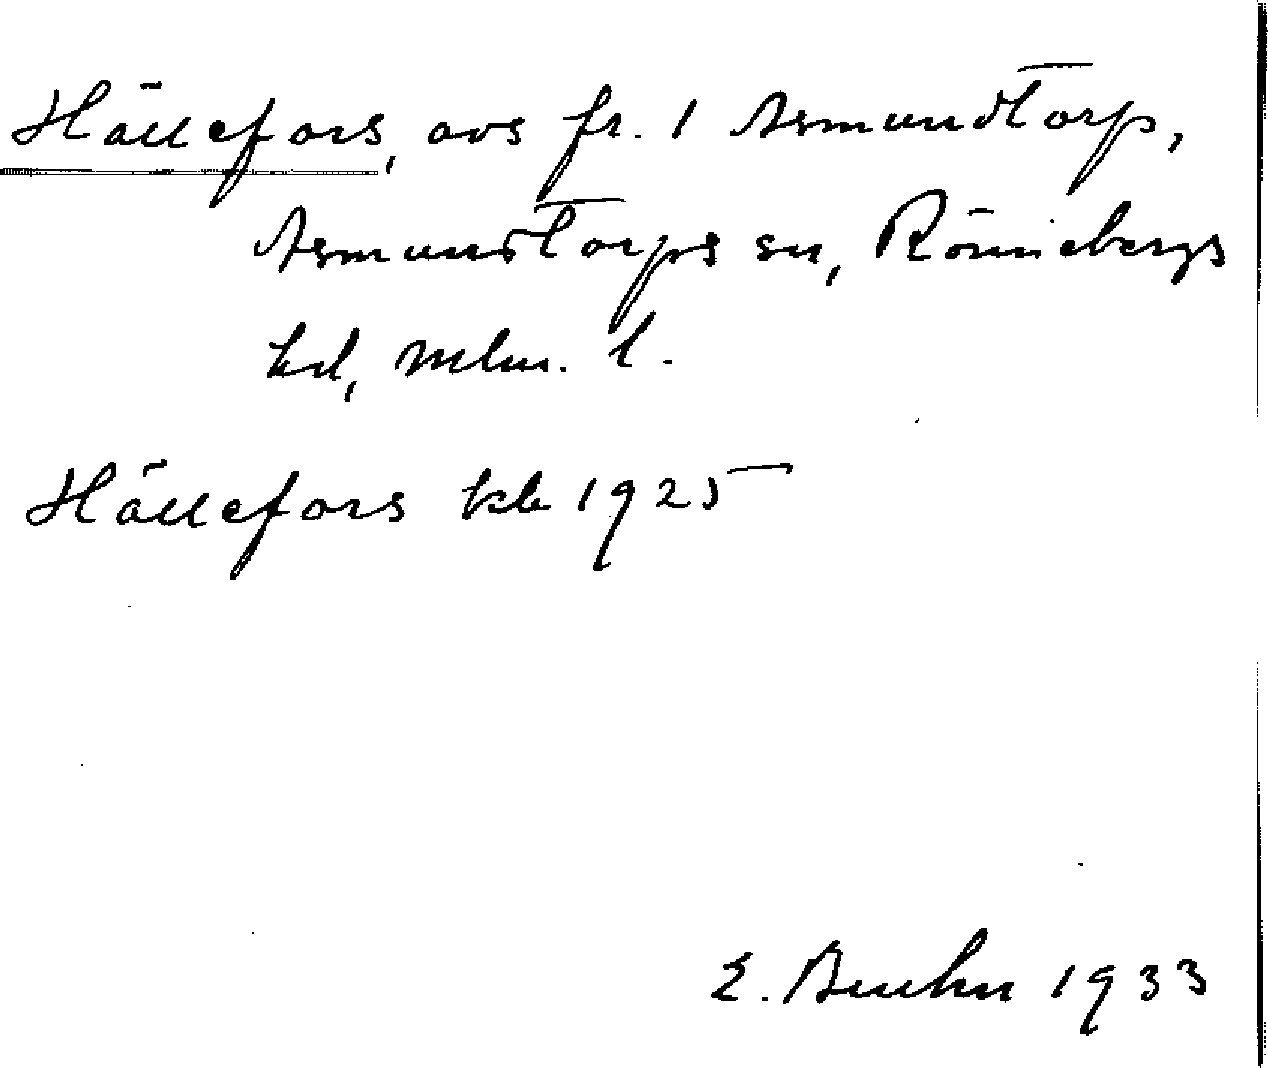 Hällefors, avs fr. 1 Asmundtorp,
Asmundtorps sn, Rönnebergs
hd, Mlm. l.
Hällefors kb 1925
E. Bruhn 1933